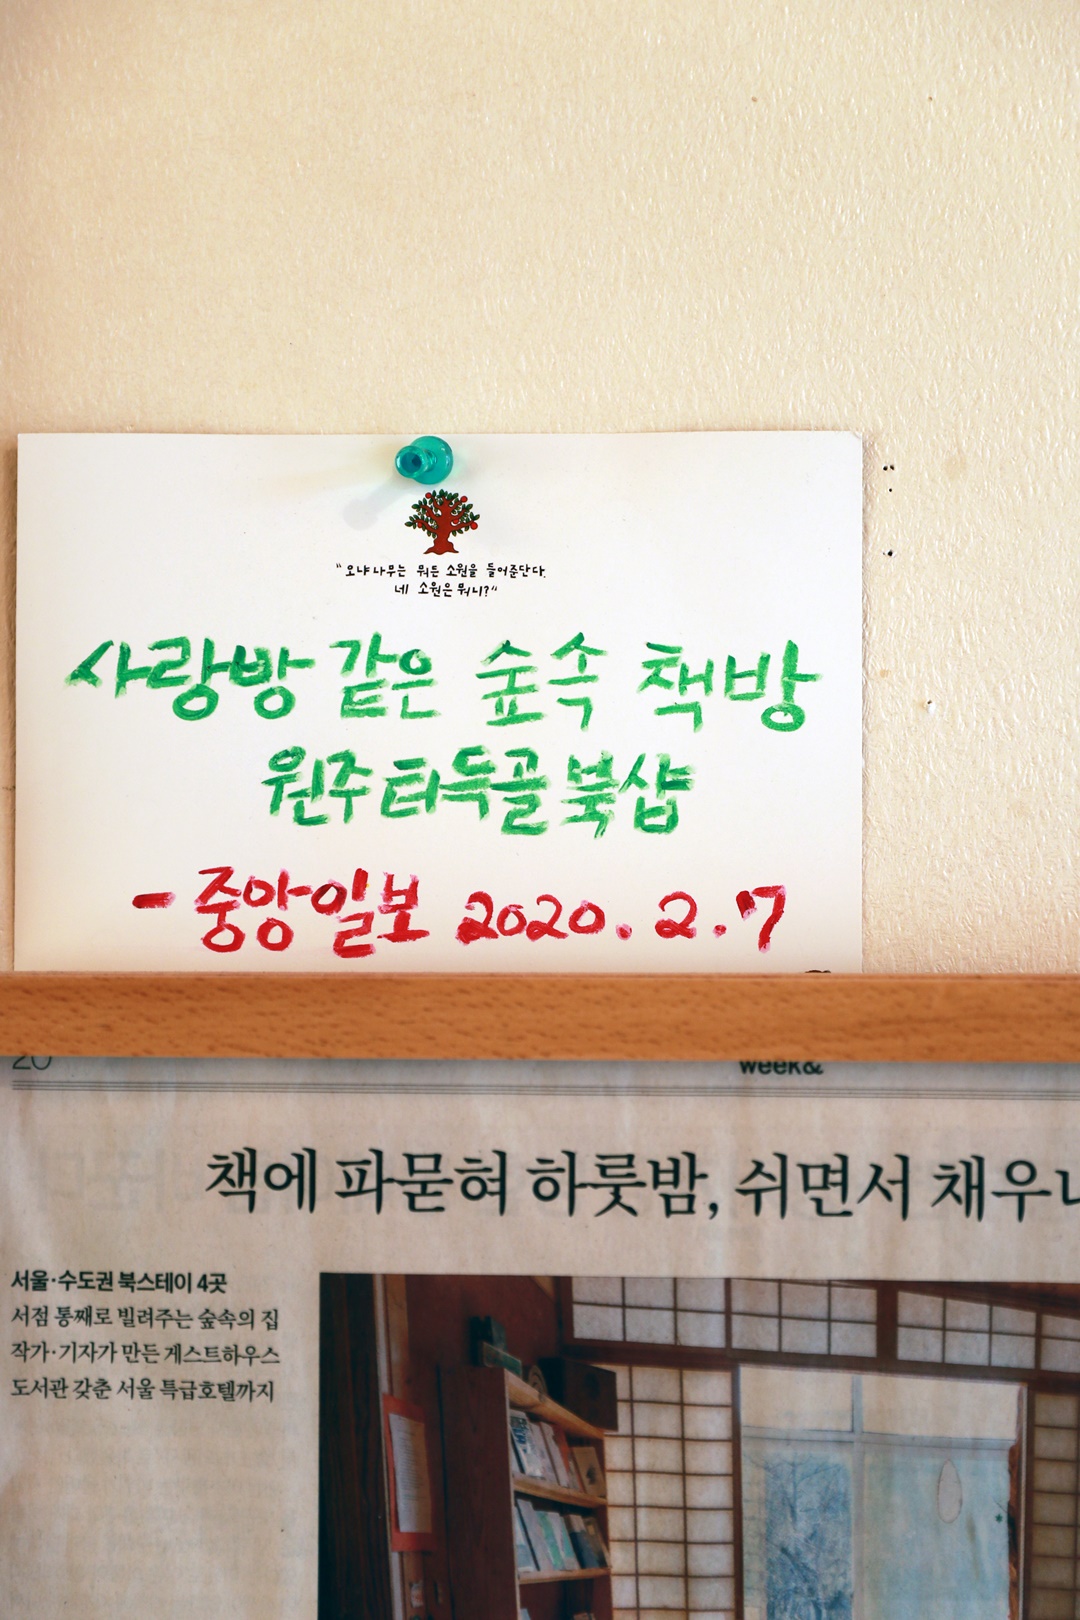 "오냐나무는 뭐든 소원을 들어준단다.
네 소원은 뭐니?"
사랑방 같은 숲속 책방
원주 터득골 북샵
- 중앙일보 2020. 2. 7
20
week&
책에 파묻혀 하룻밤, 쉬면서 채우
서울·수도권 북스테이 4곳
서점 통째로 빌려주는 숲속의 집
작가·기자가 만든 게스트하우스
도서관 갖춘 서울 특급호텔까지